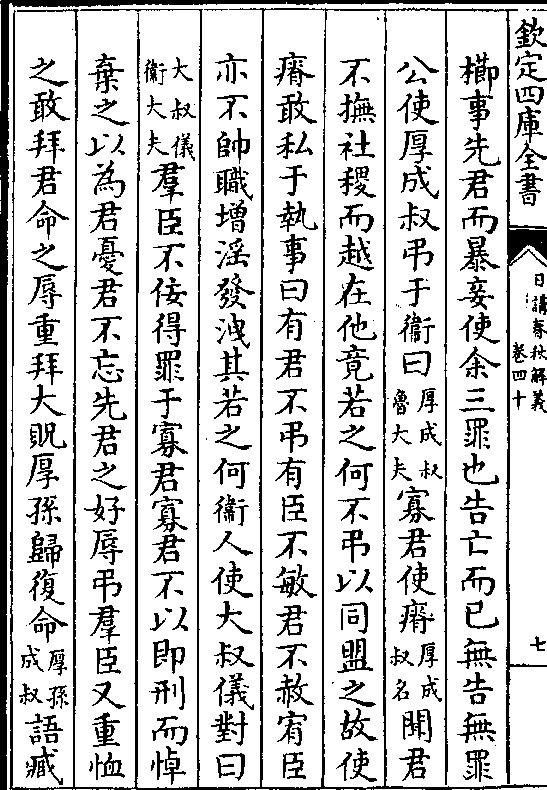 欽定四庫全書
日講春秋解義
卷四十
七
櫛事先君而暴妾使余三罪也告亡而已無告無罪
公使厚成叔弔于衞曰厚成叔魯大夫寡君使瘠厚成叔名聞君
不撫社稷而越在他竟若之何不弔以同盟之故使
瘠敢私于執事曰有君不弔有臣不敏君不赦宥臣
亦不帥職增淫發洩其若之何衞人使大叔儀對曰
大叔儀衞大夫羣臣不佞得罪于寡君寡君不以即刑而悼
棄之以為君憂君不忘先君之好辱弔羣臣又重恤
之敢拜君命之辱重拜大貺厚孫歸復命厚孫成叔語臧